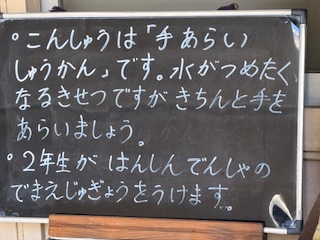 。こんしゅうは「手あらい
しゅうかん」です。水がつめたく
なるきせつですが きちんと手を
あらいましょう。
。2年生が はんしんでんしゃの
でまえじゅぎょうをうけます。